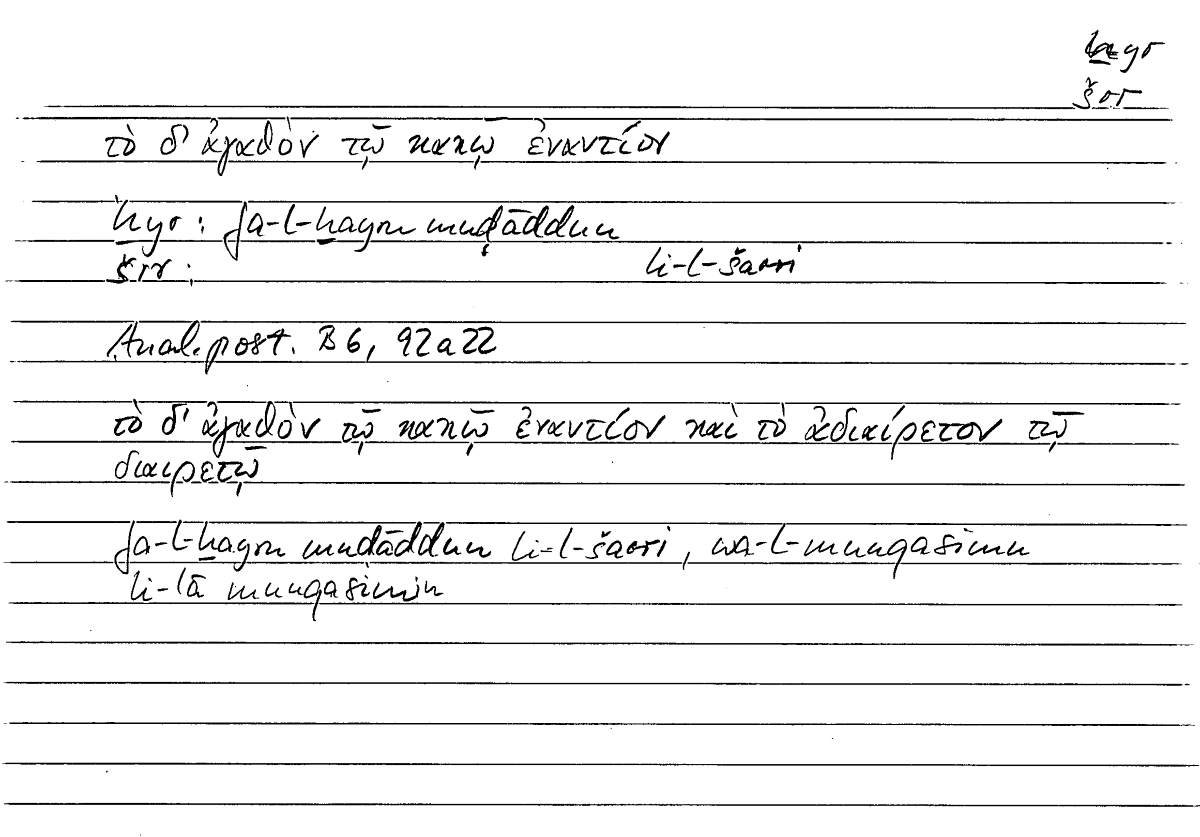 ḫyr
šrr
τὸ δ' ἀγαθὸν τῷ κακῷ ἐναντίον
ḫyr: fa-l-ḫayru muḍāddun
šrr: li-l-šarri
Anal. post. B 6, 92a22
τὸ δ' ἀγαθὸν τῷ κακῷ ἐναντίον καὶ τὸ ἀδιαίρετον τῷ
διαιρετῷ
fa-l-ḫayru muḍāddun li-l-šarri, wa-l-munqasimu
li-lā munqasimin